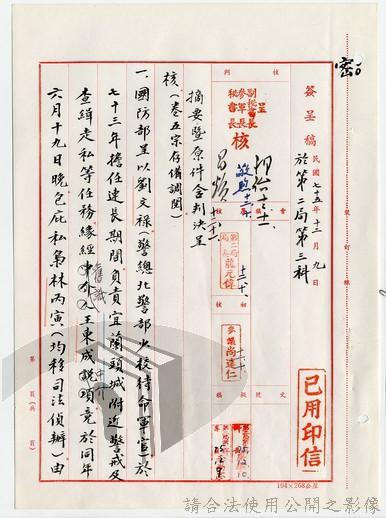 密
簽呈稿 民國七十五年十二月九日
於第二局第三科
核
判
呈
副秘書長
參軍長
秘書長
核
會
核
稿
第二局局長
初
核
參議尚達仁
擬
稿
文
號
已用印信
摘要暨原件含判決呈
核(卷五宗存備調閱)
一、國防部呈以劉文祿(警總北警部少校待命軍官)於
七十三年擔任連長期間負責宜蘭頭城附近警戒及
查緝走私等任務緣經舊識王東成說項竟於同年
六月十九日晚包庇私梟林丙寅(均移司法偵辦)由
裝
訂
線
第 頁(共 頁)
194×268公厘
請合法使用公開之影像